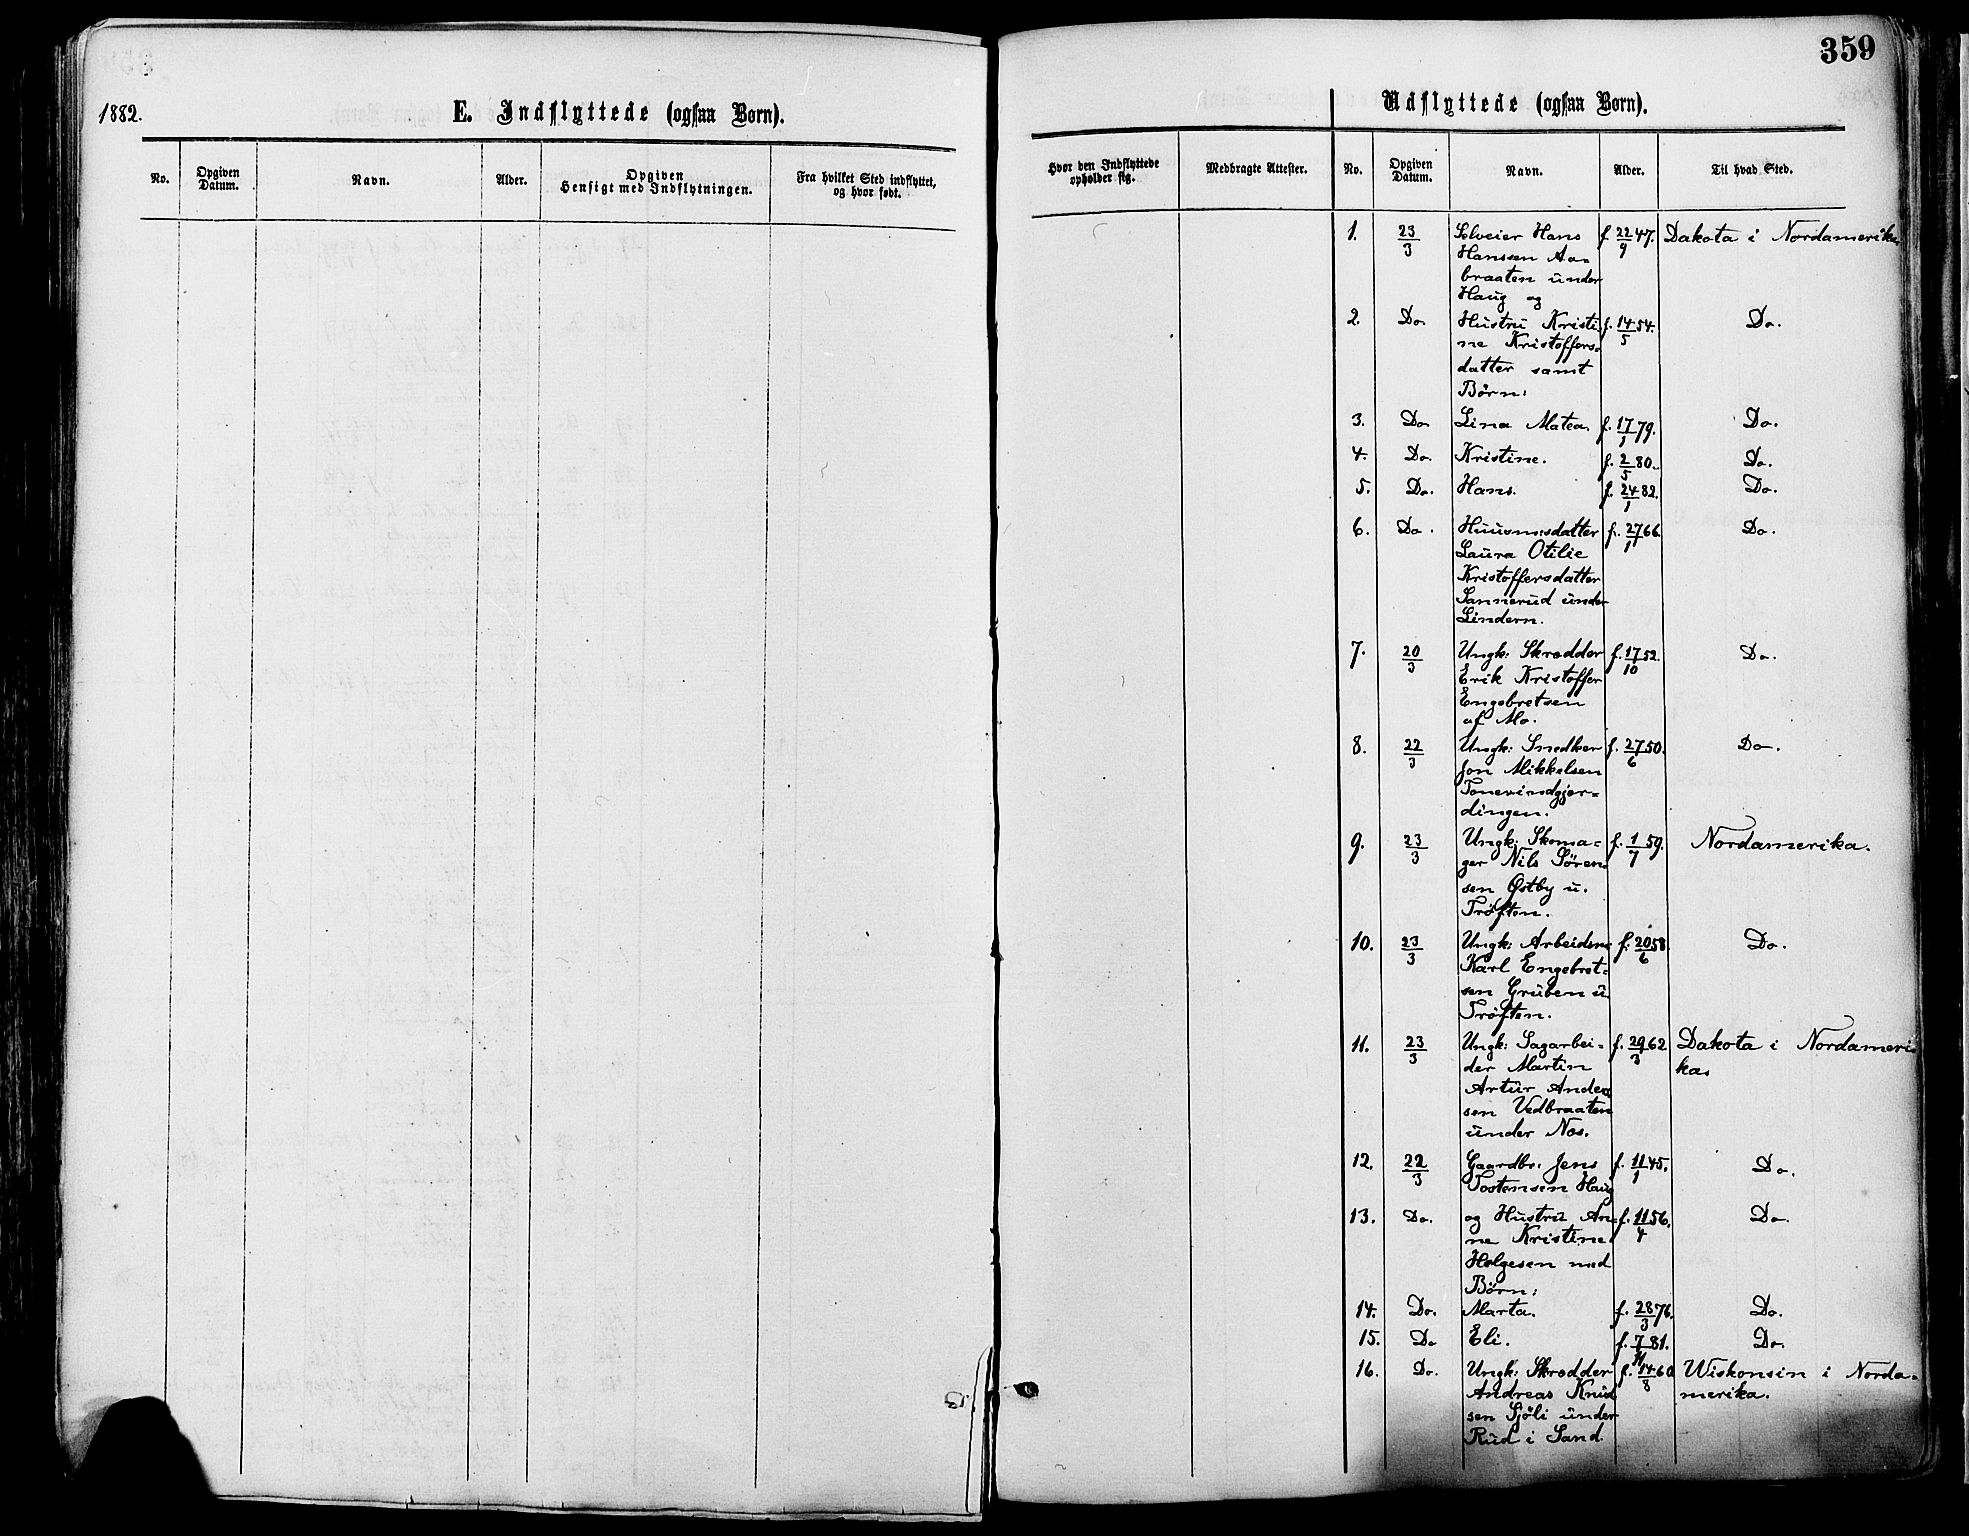 359
1882.
E. Indflyttede (ogsaa Børn).
Udflyttede (ogsaa Børn).
No.
Opgiven Datum.
Navn.
Alder.
Opgiven Hensigt med Indflytningen.
Fra hvilket Sted indflyttet, og hvor født.
Hvor den Indflyttede opholder sig.
Medbragte Attester.
No.
Opgiven Datum.
Navn.
Alder.
Til hvad Sted.
1. 23/3 Selveier Hans f. 22/9 47. Dakota i Nordamerika
Hanssen Aa=
braaten under
Haug og
2. Do. Hustru Kristi f. 14/5 54. Do.
ne Kristoffers=
datter samt
Börn:
3. Do Lina Matea. f. 17/1 79. Do.
4. Do. Kristine. f. 2/5 80. Do.
5. Do. Hans. f. 24/1 82. Do.
6. Do. Huusmsdatter f. 27/1 66. Do.
Laura Otilie
Kristoffersdatter
Sannerud under
Lindern.
7. 20/3 Ungk: Skrædder f. 17/10 52. Do.
Erik Kristoffer
Engebretsen
af Mo.
8. 22/3 Ungk: Snedker f. 27/6 50. Do.
Jon Mikkelsen
dingen.
9. 23/3 Ungk: Skoma= f. 1/7 59. Nordamerika.
ger Nils Sören
sen Østby u.
Tröften.
10. 23/3 Ungk: Arbeidsm f. 20/6 58. Do.
Karl Engebret=
sen Gruben u.
Tröften.
11. 23/3 Ungk: Sagarbei= f. 29/3 62 Dakota i Nordameri
der Martin kas
Artur Ander
sen Vedbraaten
under Næs.
12. 22/3 Gaardbr: Jens f. 11/1 45. Do.
Tostensen Haug
13. Do. og Hustru An= f. 11/4 56. Do.
ne Kristine
Helgesen med
Börn:
14. Do. Marta. f. 28/3 76. Do.
15. Do Eli. f. 7/11 81. Do.
16. Do. Ungk: Skrædder f. 14/8 60 Wiskonsin i Norda=
Andreas Knud merika.
sen Sjöli under
Rud i Sand.